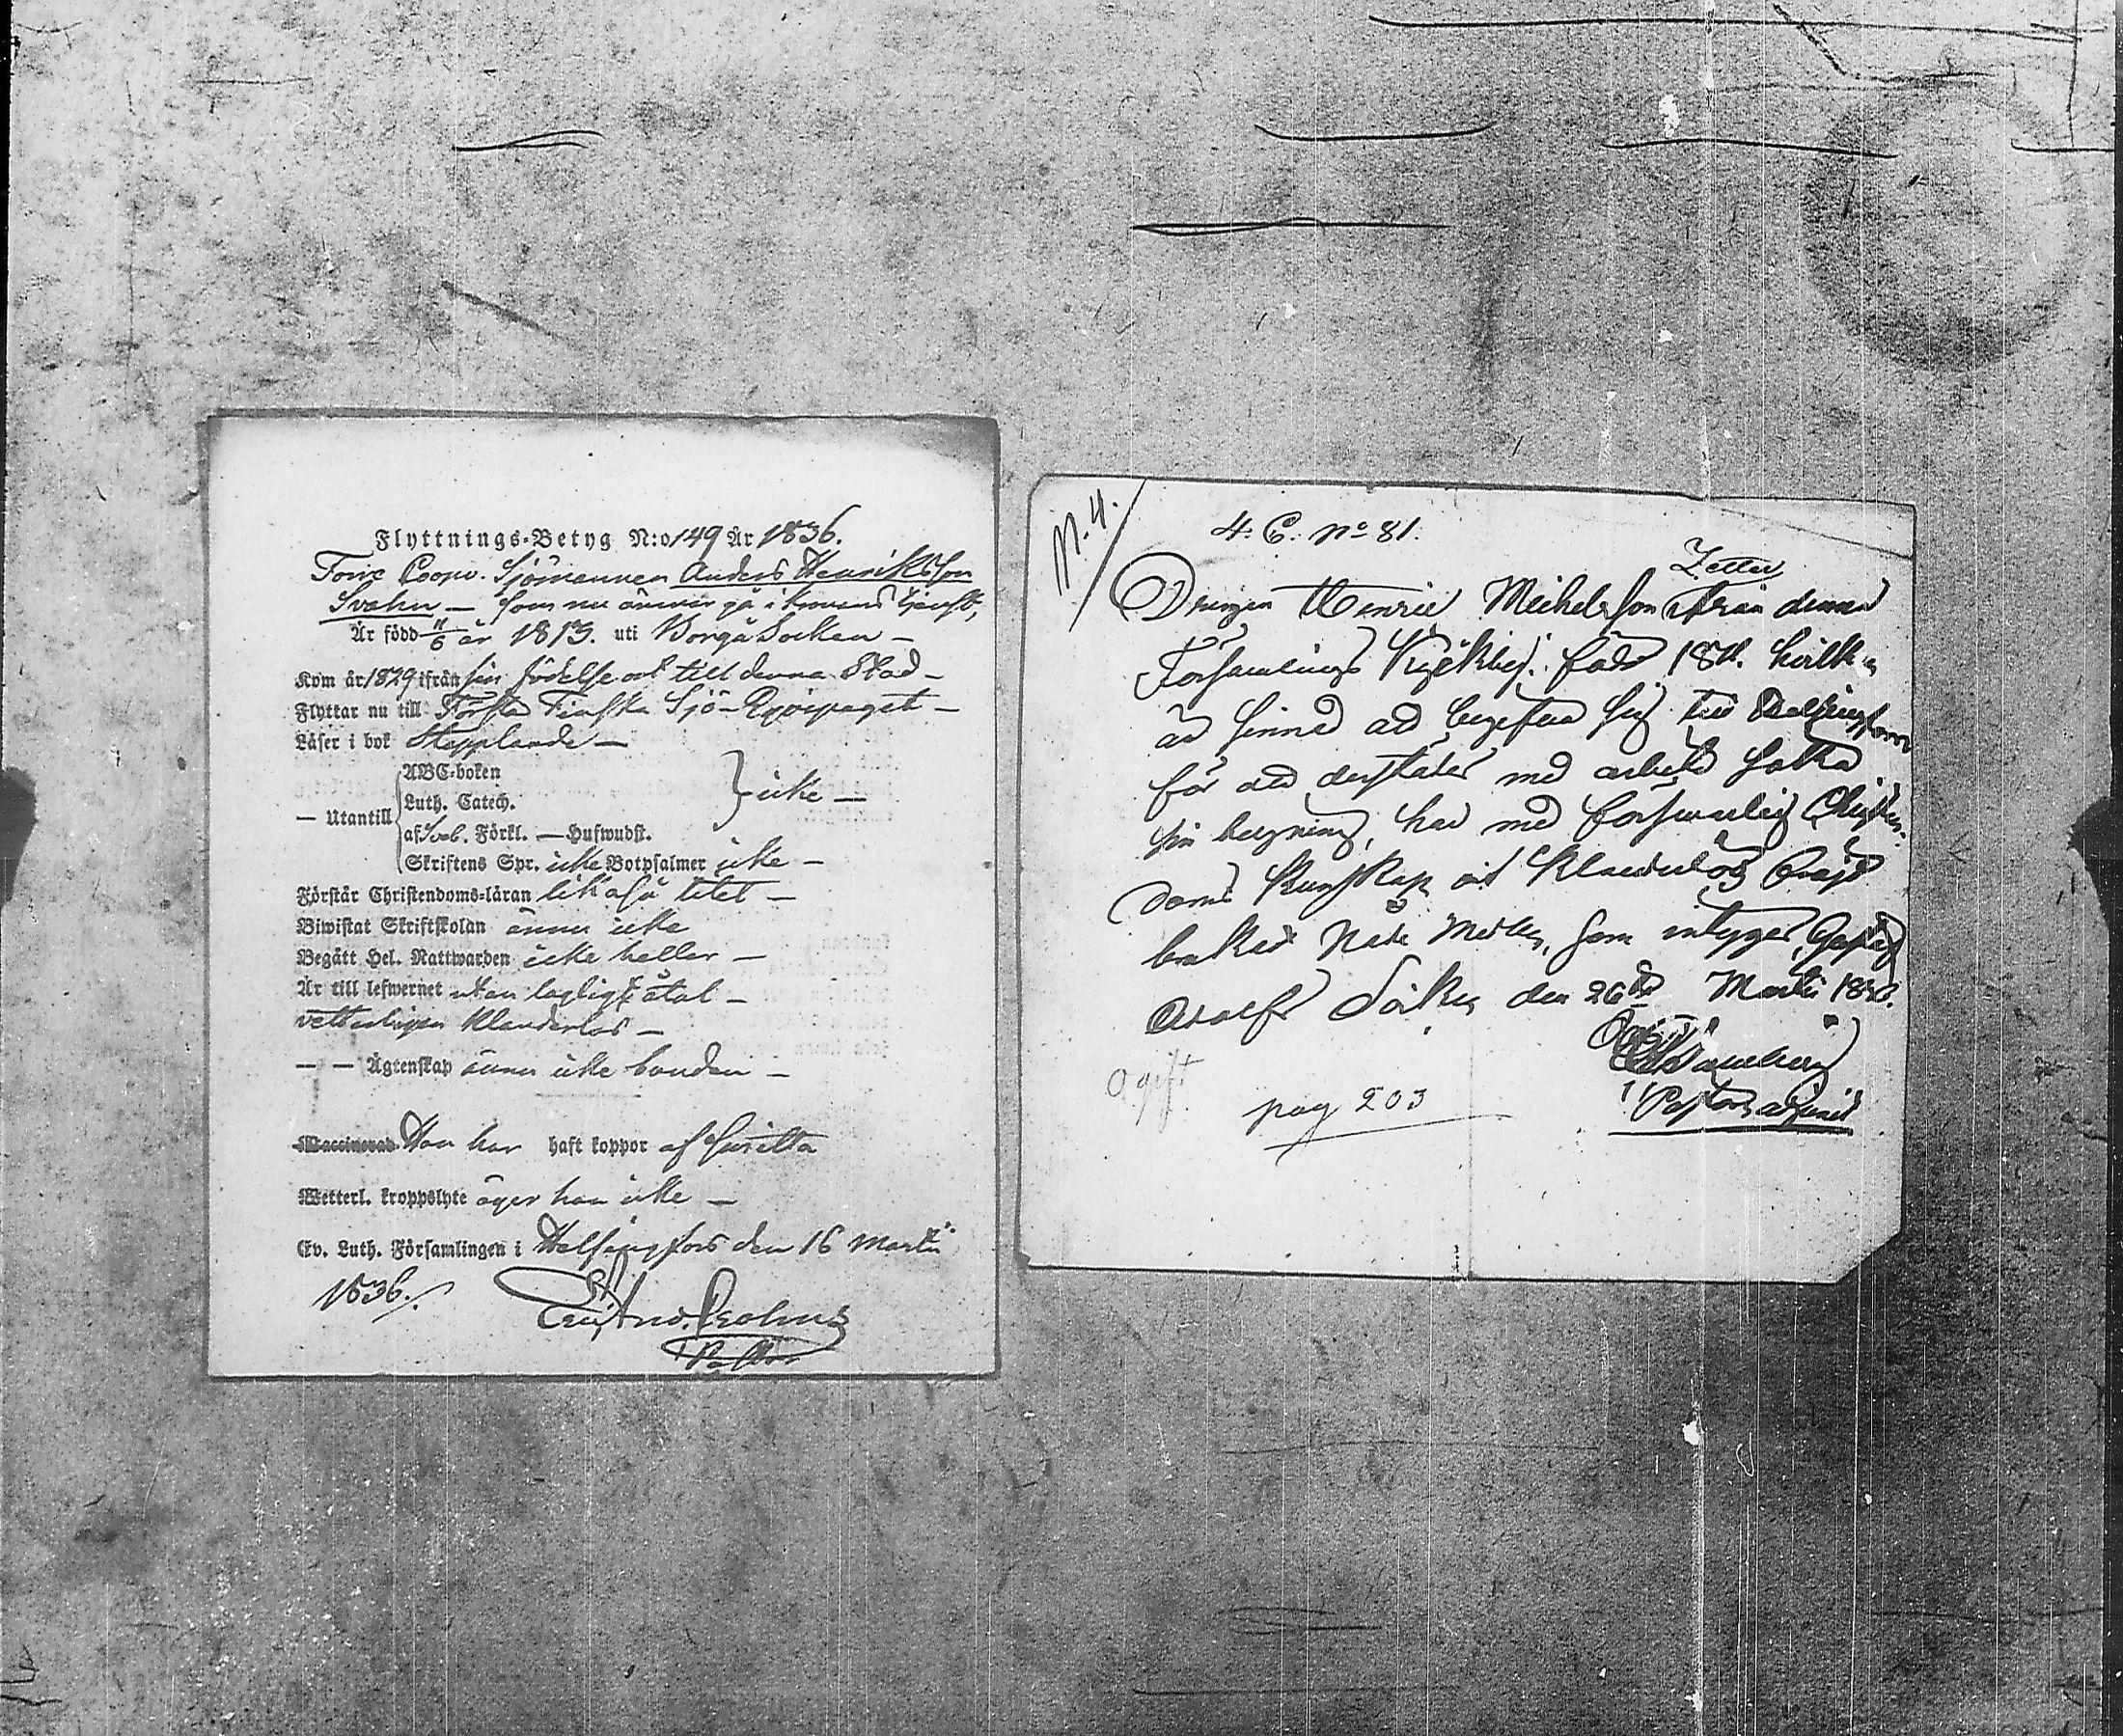 Flyttnings-Betyg N:o 149 År 1836.
Sjömannen Anders Henriksson
Svahn — som nu ämnar gå i Kronans tjenst,
Är född 11/6 år 1813. uti Borgå Socken —
Kom år 1829 ifrån sin födelse ort till denna Stad —
Flyttar nu till Första Finska Sjö-Equipaget —
Läser i bok Stapplande —
— Utantill
ABC-boken
Luth. Catech.
af Sveb. Förkl. — Hufwudst.
icke —
Skriftens Spr. icke Botpsalmer icke —
Förstår Christendoms-läran likaså litet —
Biwistat Skriftskolan ännu icke
Begått Hel. Nattwarden icke heller —
Är till lefwernet utan lagligt åtal —
vetterligen klanderlös —
— — Ägtenskap ännu icke bunden —
Han har haft koppor af
Wetterl. kroppslyte äger han icke —
Ev. Luth. Församlingen i Helsingfors den 16 Martii
1836.
Pastor
N. 4.
4. C. No 81.
Zetter
Drengen Henric Michelsson från denna
Församlings född hvilken
är sinnad att begifva sig till Helsingfors
för att derstädes med arbete söka
sin bergning, har med försvarlig Christen-
doms kunskap och klanderlös
brukat Nåde Medlen, som intygas, Gustaf
Adolfs Socken den 26de Martii
Pastors adjunct
Ogift
pag 203